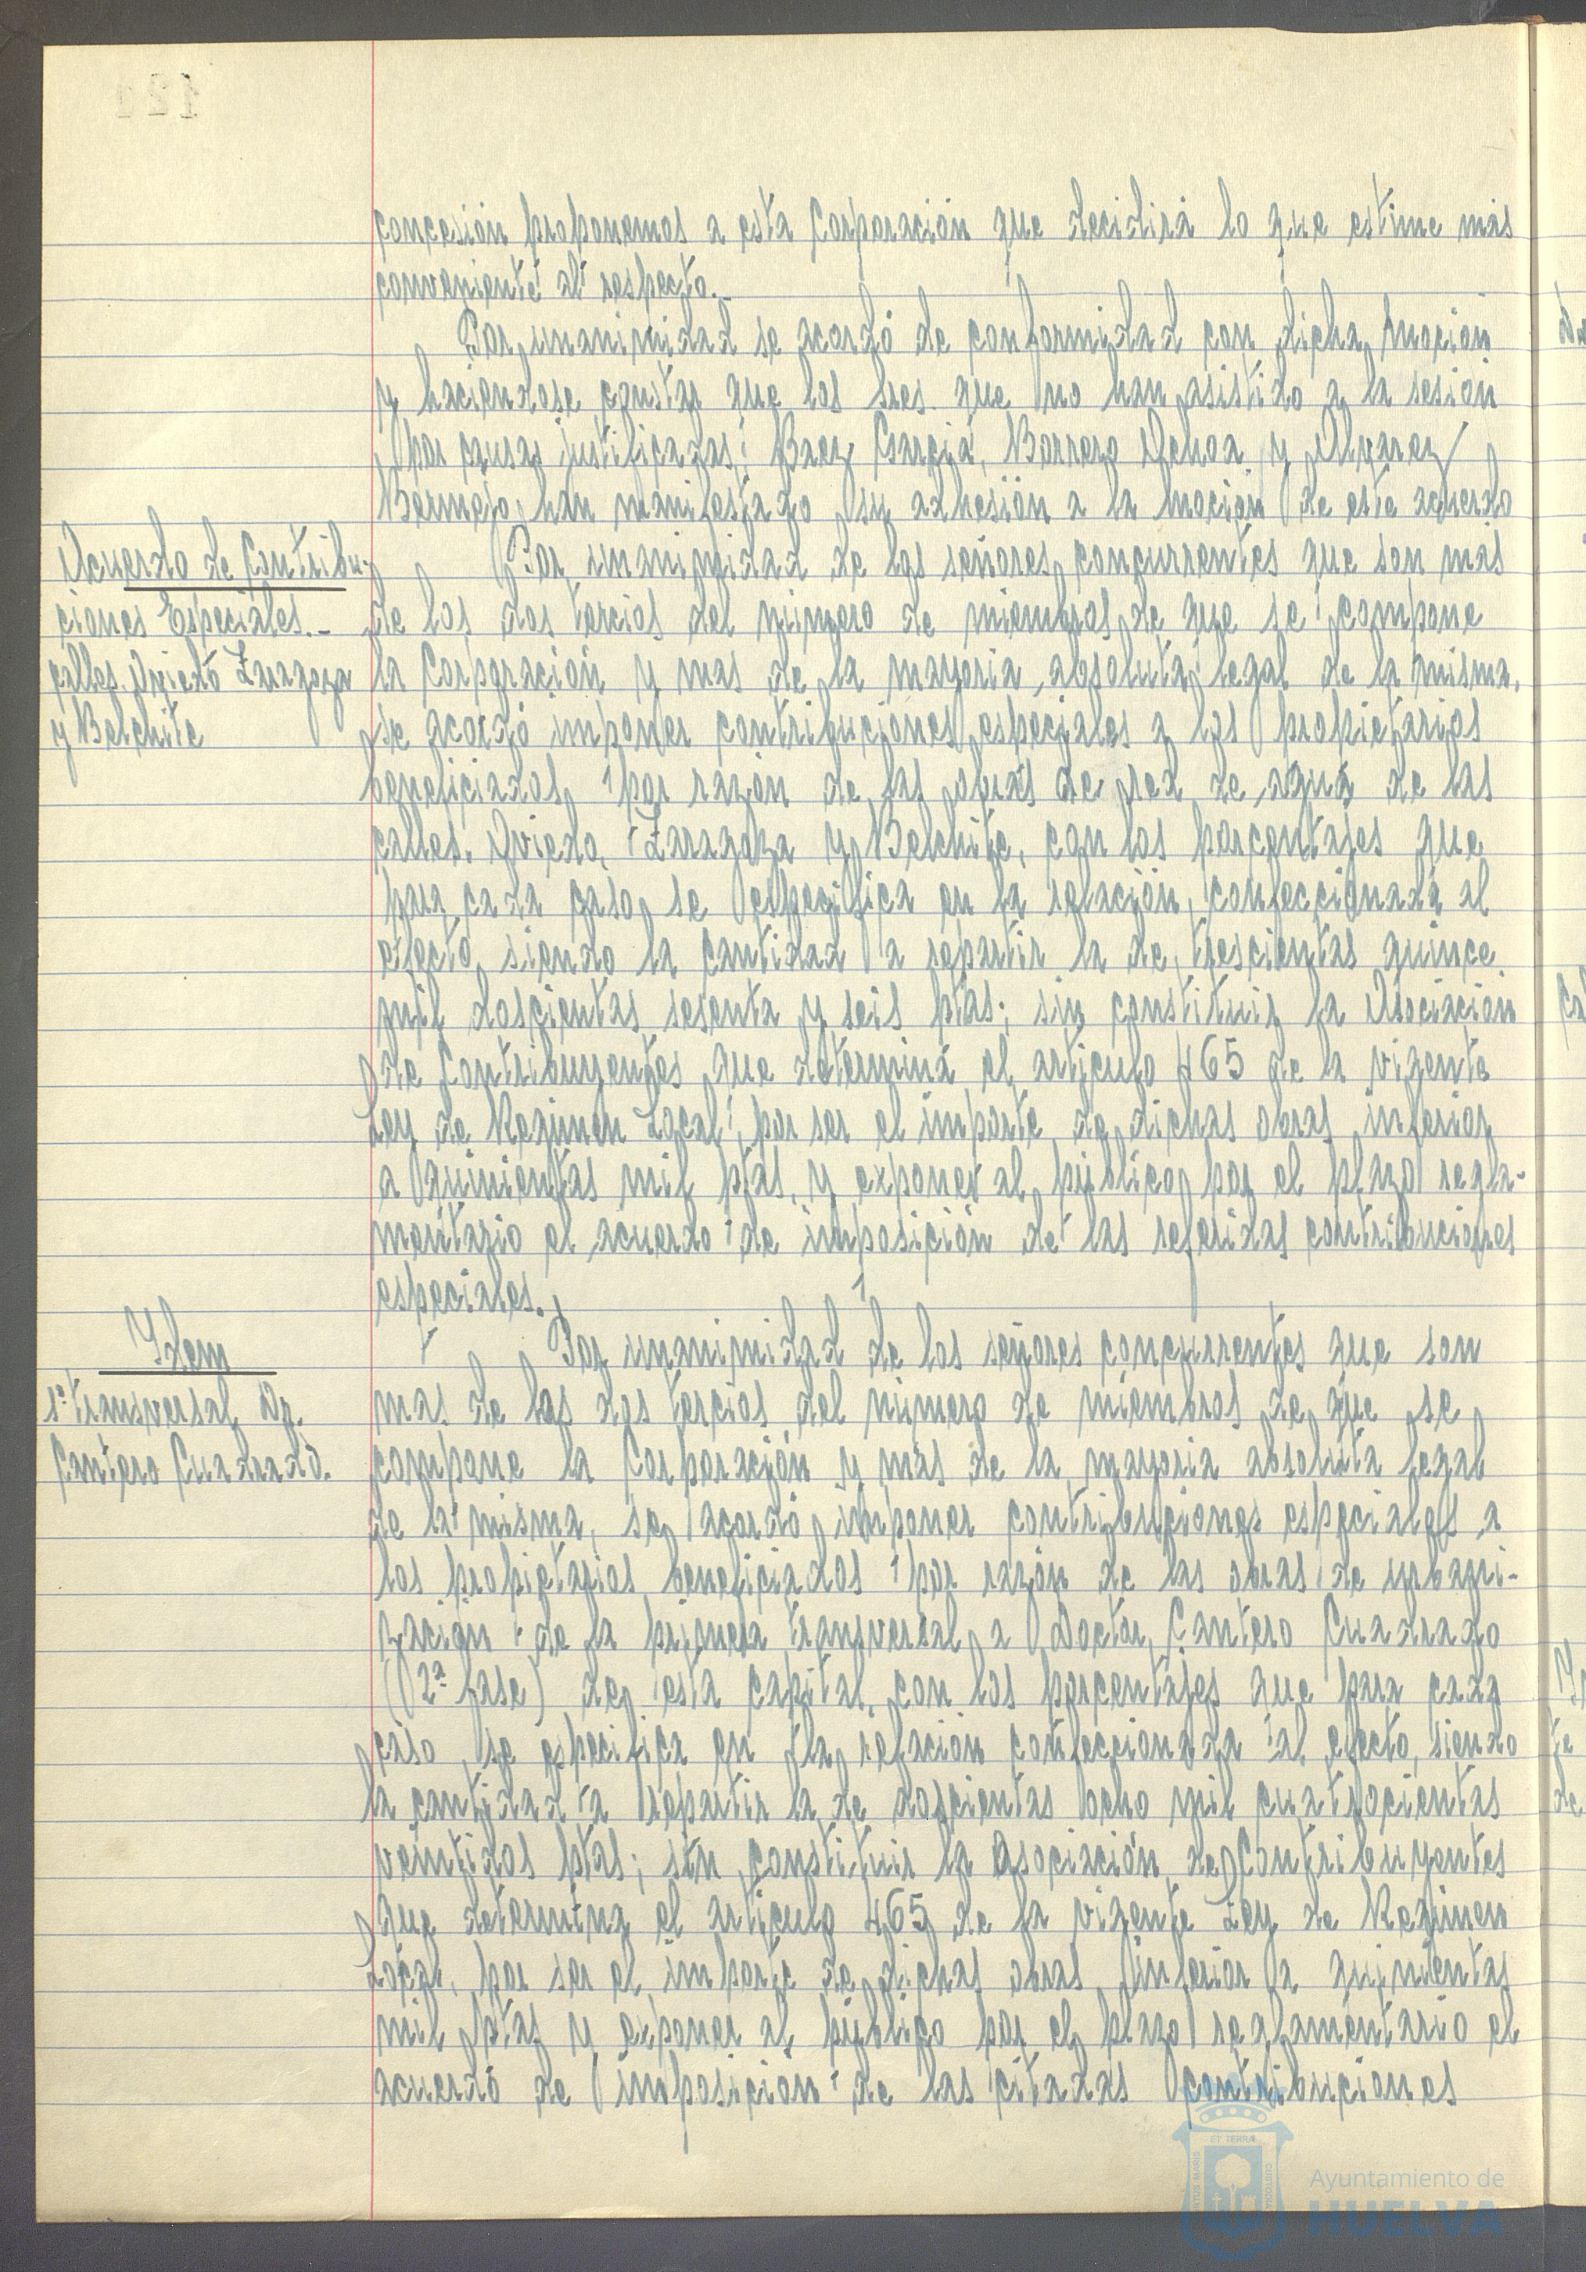 concesión proponemos a esta Corporación que decidirá lo que estime más
conveniente al respecto.-
Por unanimidad se acordó de conformidad con dicha moción
y haciendose constar que los Sres. que no han asistido a la sesión
por causas justificadas: Baez Garcia, Borrero Ochoa y Alvarez
Bermejo, han manifestado su adhesión a la moción de este acuerdo
Acuerdo de Contribu-
ciones Especiales.-
calles Oviedo Zaragoza
y Belchite
Por unanimidad de los señores concurrentes que son más
de los dos tercios del número de miembros de que se compone
la Corporación y mas de la mayoria absoluta legal de la misma,
se acordó imponer contribuciones especiales a los propietarios
beneficiados, por razón de las obras de red de agua de las
calles. Oviedo, Zaragoza y Belchite, con los porcentajes que
para cada caso, se especifica en la relación, confeccionada al
efecto, siendo la cantidad a repartir la de, trescientas quince
mil doscientas sesenta y seis ptas; sin constituir la Asociación
de Contribuyentes que determina el artículo 465 de la vigente
Ley de Regimen Local, por ser el importe de dichas obras inferior
a quinientas mil ptas, y exponer al público, por el plazo regla-
mentario el acuerdo de imposición de las referidas contribuciones
especiales.
Idem
1ª transversal Dr.
Cantero Cuadrado.
Por unanimidad de los señores concurrentes que son
mas de los dos tercios del número de miembros de que se
compone la Corporación y más de la mayoria absoluta legal
de la misma, se acordó imponer contribuciones especiales a
los propietarios beneficiados por razón de las obras de urbani-
zación de la primera transversal a Doctor Cantero Cuadrado
(2ª fase) de esta capital, con los porcentajes que para cada
caso se especifica en la relación confeccionada al efecto, siendo
la cantidad a repartir la de doscientas ocho mil cuatrocientas
veintidos ptas; sin constituir la Asociación de Contribuyentes
que determina el artículo 465 de la vigente Ley de Regimen
Local, por ser el importe de dichas obras inferior a quinientas
mil ptas y exponer al público por el plazo reglamentario el
acuerdo de imposición de las citadas contribuciones
Ayuntamiento de
HUELVA